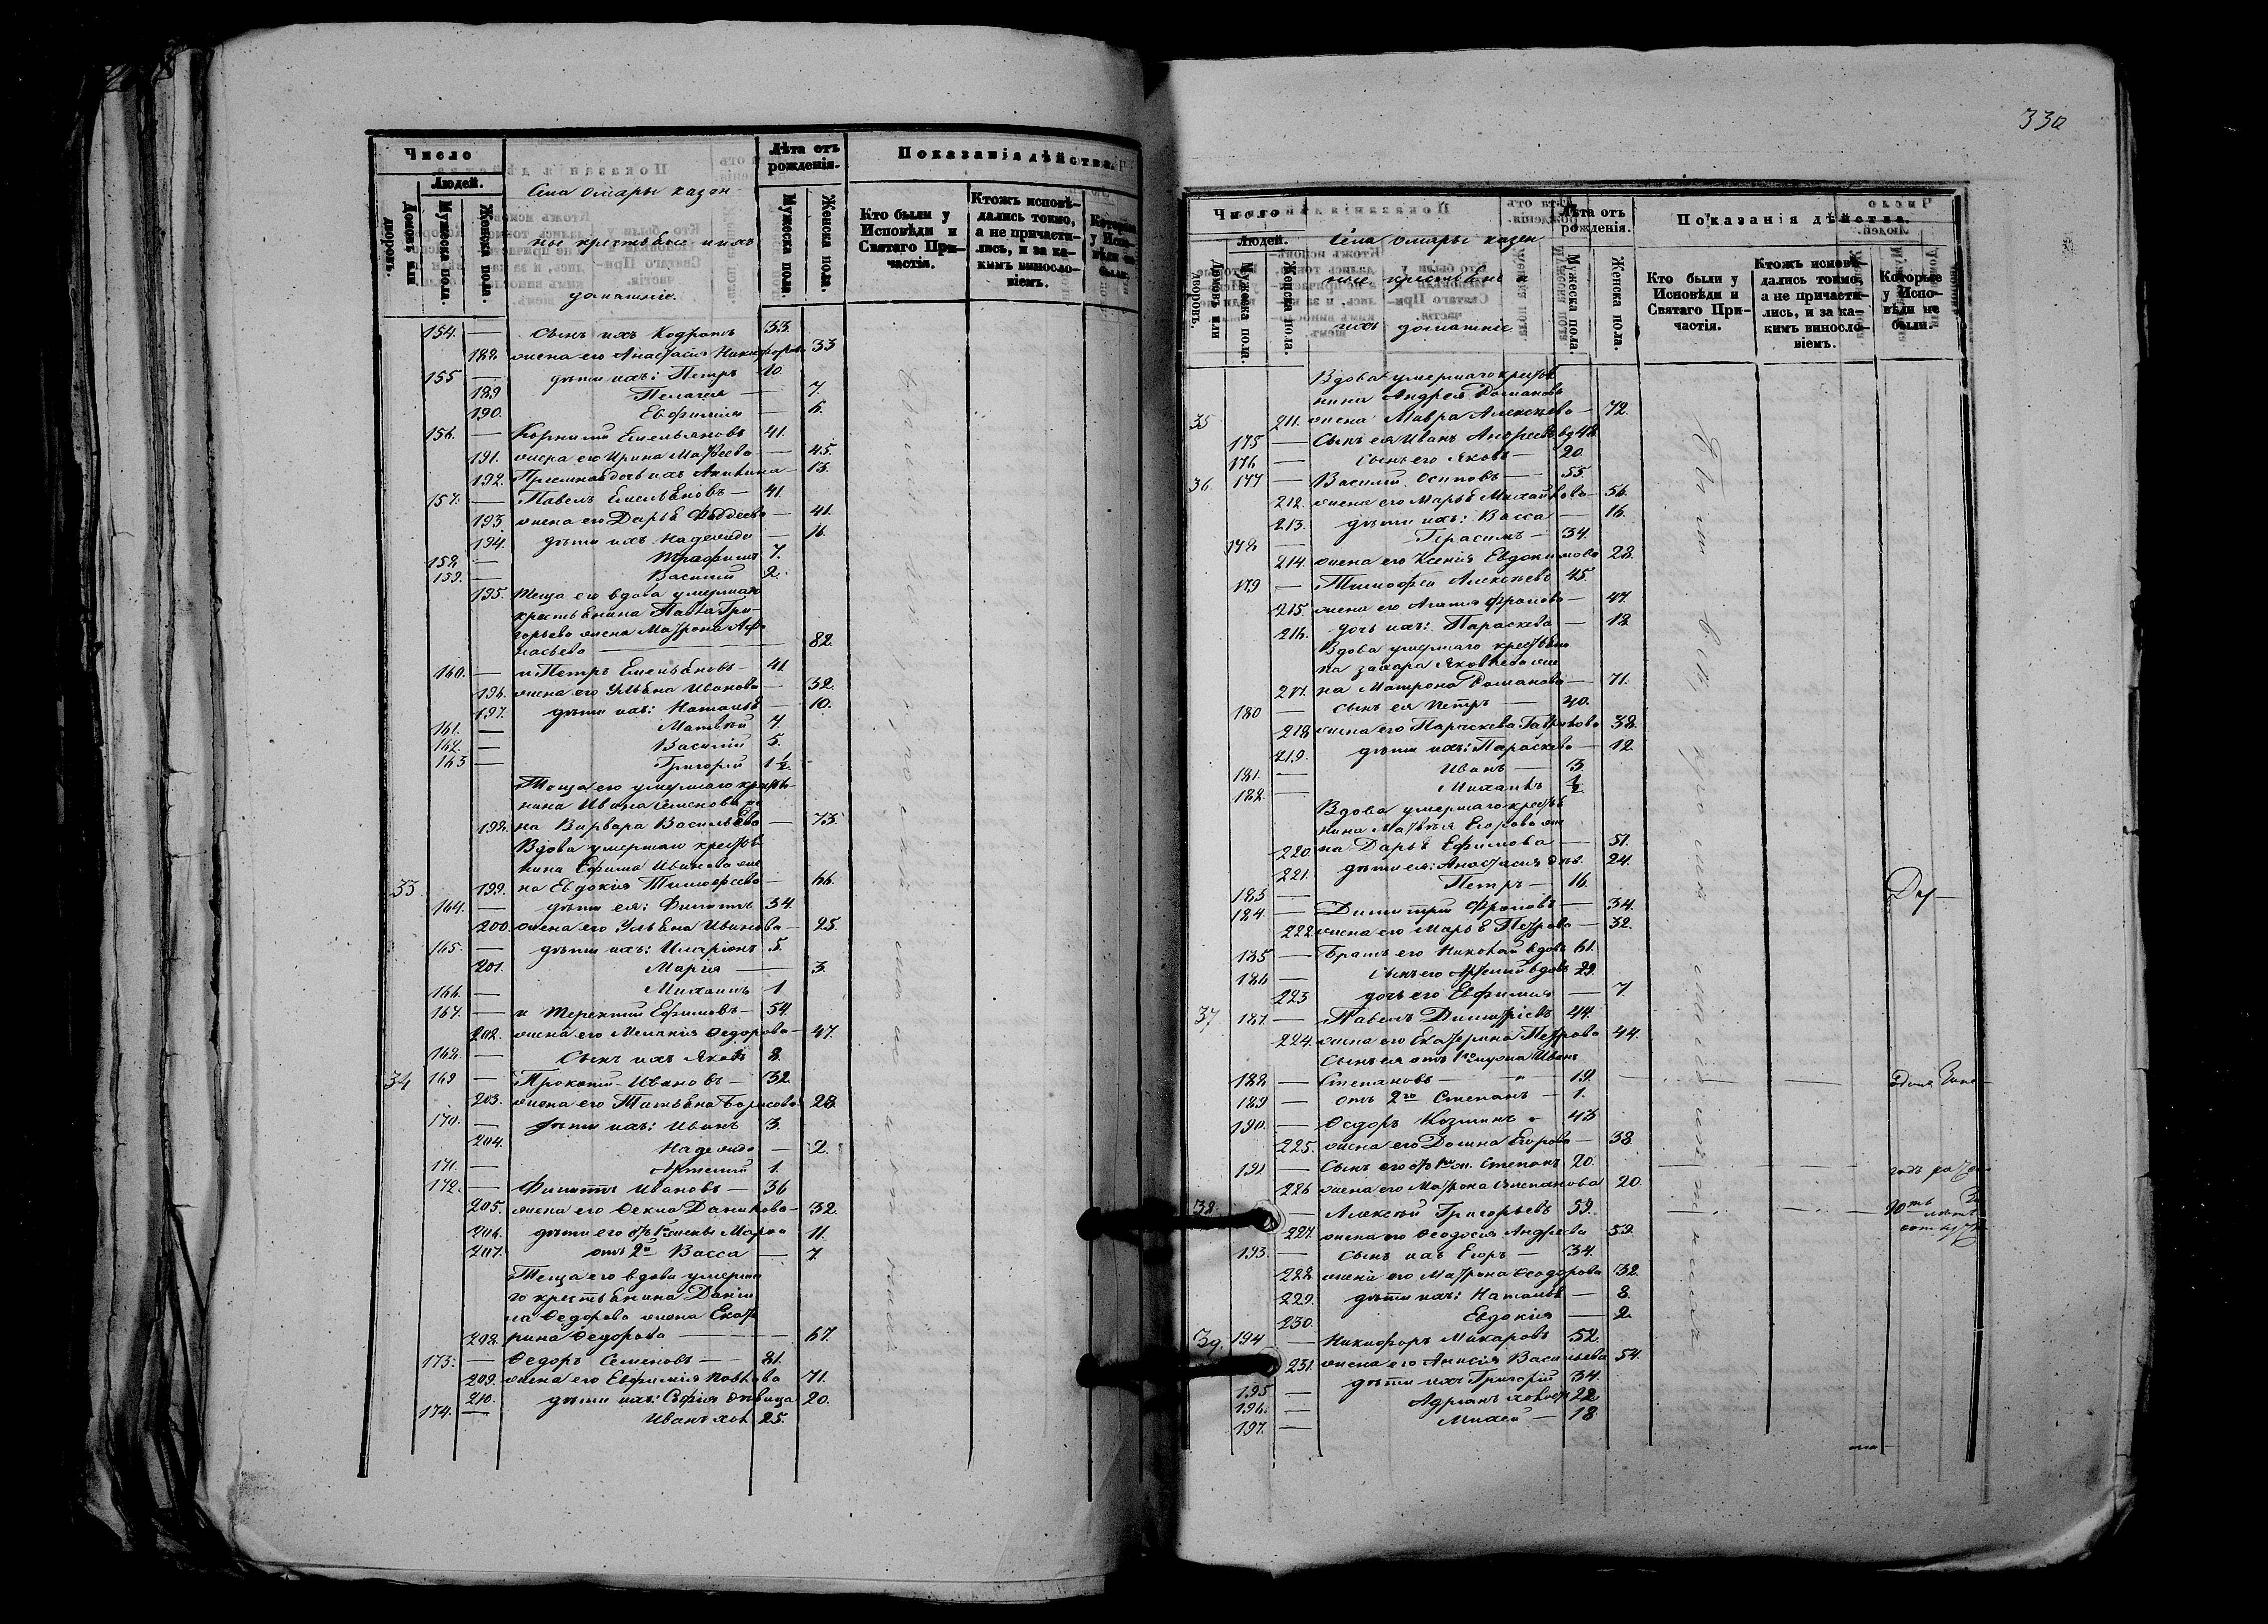 Число
Людей.
Домовъ или дворовъ.
Мужеска пола.
Женска пола.
Села Омары казен
ные крестьяне и ихъ
домашние.
Лѣта отъ рожденія.
Мужеска пола.
Женска пола.
Показанія дѣйства.
Кто были у Исповѣди и Святаго Причастія.
Ктожъ исповѣдались токмо, а не причастились, и за какимъ винословіемъ.
154. — сынъ ихъ Кодратъ 33.
188 жена его Анастасія Никифорова 33
155 — дѣти ихъ: Петръ 10.
189 Пелагея — 7.
190. Евфимія — 5.
156. — Корнилій Емельяновъ 41.
191. жена его Ирина Матвеева — 45.
192. Приемная дочь ихъ Акилина — 13.
157. — Павелъ Емельяновъ — 41.
193 жена его Дарья Фаддеева — 41.
194. дѣти ихъ Надежда — 16.
158 — Трафимъ 7.
159. — Василий 2.
195. Теща его вдова умершаго
крестьянина Павла Гри-
горьева жена Матрона Афа
насьева — 82.
160. — и Петръ Емельяновъ — 41
196. жена его Ульяна Иванова — 32.
197. дѣти ихъ: Наталья — 10.
161. — Матвѣй 7.
162. — Василій 5.
163 — Григорій 1½.
Теща его умершаго кресть-
нина Ивана Семенова же
198. на Варвара Васильева — 73.
Вдова умершаго кресть
нина Ефима Иванова же
33 199. на Евдокія Тимофеева — 66.
164. — дѣти ея: Филатъ 34.
200. жена его Ульяна Иванова — 25.
165. — дѣти ихъ: Иларіонъ 5.
201. Марія — 3.
166. — Михаилъ 1
167. — и Терентий Ефимовъ — 54.
202. жена его Меланія Федорова — 47.
168 — Сынъ ихъ Яковъ 8.
34 169 — Прокопий Ивановъ — 32.
203. жена его Татьяна Борисова 28.
170. — дѣти ихъ: Иванъ 3.
204. Надежда — 2.
171. — Артемий 1.
172. — Филиппъ Ивановъ — 36
205. жена его Фекла Данилова — 32.
206. дѣти его отъ 1й жены Марфа 11.
207. отъ 2й Васса — 7
Теща его вдова умерша
го крестьянина Дани
ла Федорова жена Екате
208. рина Федорова — 67.
173. — Федоръ Семеновъ — 81.
209. жена его Евфимія Павлова 71.
210. дѣти ихъ: Софія дѣвица 20.
174. — Иванъ хол 25.
330
Число
Людей.
Домовъ или дворовъ.
Мужеска пола.
Женска пола.
Села Омары казен
ные крестьяне и
ихъ домашніе
Лѣта отъ рожденія.
Мужеска пола.
Женска пола.
Показанія дѣйства.
Кто были у Исповѣди и Святаго Причастія.
Ктожъ исповѣдались токмо, а не причастились, и за какимъ винословіемъ.
Которые у Исповѣди не были.
Вдова умершаго кресть
нина Андрея Романова
35 211. жена Мавра Алексеева — 72.
175 — Сынъ ея Иванъ Андреевъ вд 48.
176 — сынъ его Яковъ — 20.
36. 177 — Василий Осиповъ — 55.
212. жена его Марья Михайлова — 56.
213. дѣти ихъ: Васса — 16.
178 — Герасимъ — 34.
214. жена его Ксения Евдокимова 28.
179 — Тимофей Алексеевъ 45.
215. жена его Агапия Фролова — 47.
216. дочь ихъ: Параскева — 18
Вдова умершаго крестьяни
на Захара Яковлева же
217. на Матрона Романова — 71.
180 — сынъ ея Петръ — 40.
218 жена его Параскева Гаврилова 38.
219. дѣти ихъ: Параскева — 12.
181. — Иванъ — 3.
182. — Михаилъ ½.
Вдова умершаго кресть
нина Матвея Егорова же
220. на Дарья Ефимова — 51.
221. дѣти ея: Анастасия дѣв. 24.
183 — Петръ — 16.
184 — Димитрий Фроловъ — 34.
222 жена его Марья Петрова — 32.
185 — Братъ его Николай вдовъ 61.
186 — Сынъ его Артемий вдовъ 29.
223 дочь его Евфимия — 7.
37 187. — Павелъ Димитріевъ 44.
224. жена его Екатерина Петрова 44.
Сынъ ея отъ 1го мужа Иванъ
188 — Степановъ — 19.
189 — отъ 2го Степанъ — 1.
190. — Федоръ Козминъ 43
225. жена его Домна Егорова — 38.
191 — Сынъ его отъ 1й ж. Степанъ 20.
226 жена его Матрона Степанова 20.
38. — Алексѣй Григорьевъ 59.
227. жена его Феодосия Андреева 59.
193. — сынъ ихъ Егоръ — 34.
228 жена его Матрона Феодорова 32.
229. дѣти ихъ: Наталья — 8.
230. Евдокія — 2.
39. 194 — Никифоръ Макаровъ 52.
231. жена его Анисія Васильева 54.
195 — дѣти ихъ Григорій 34.
196. — Адрианъ холост 22
197. — Михей — 18